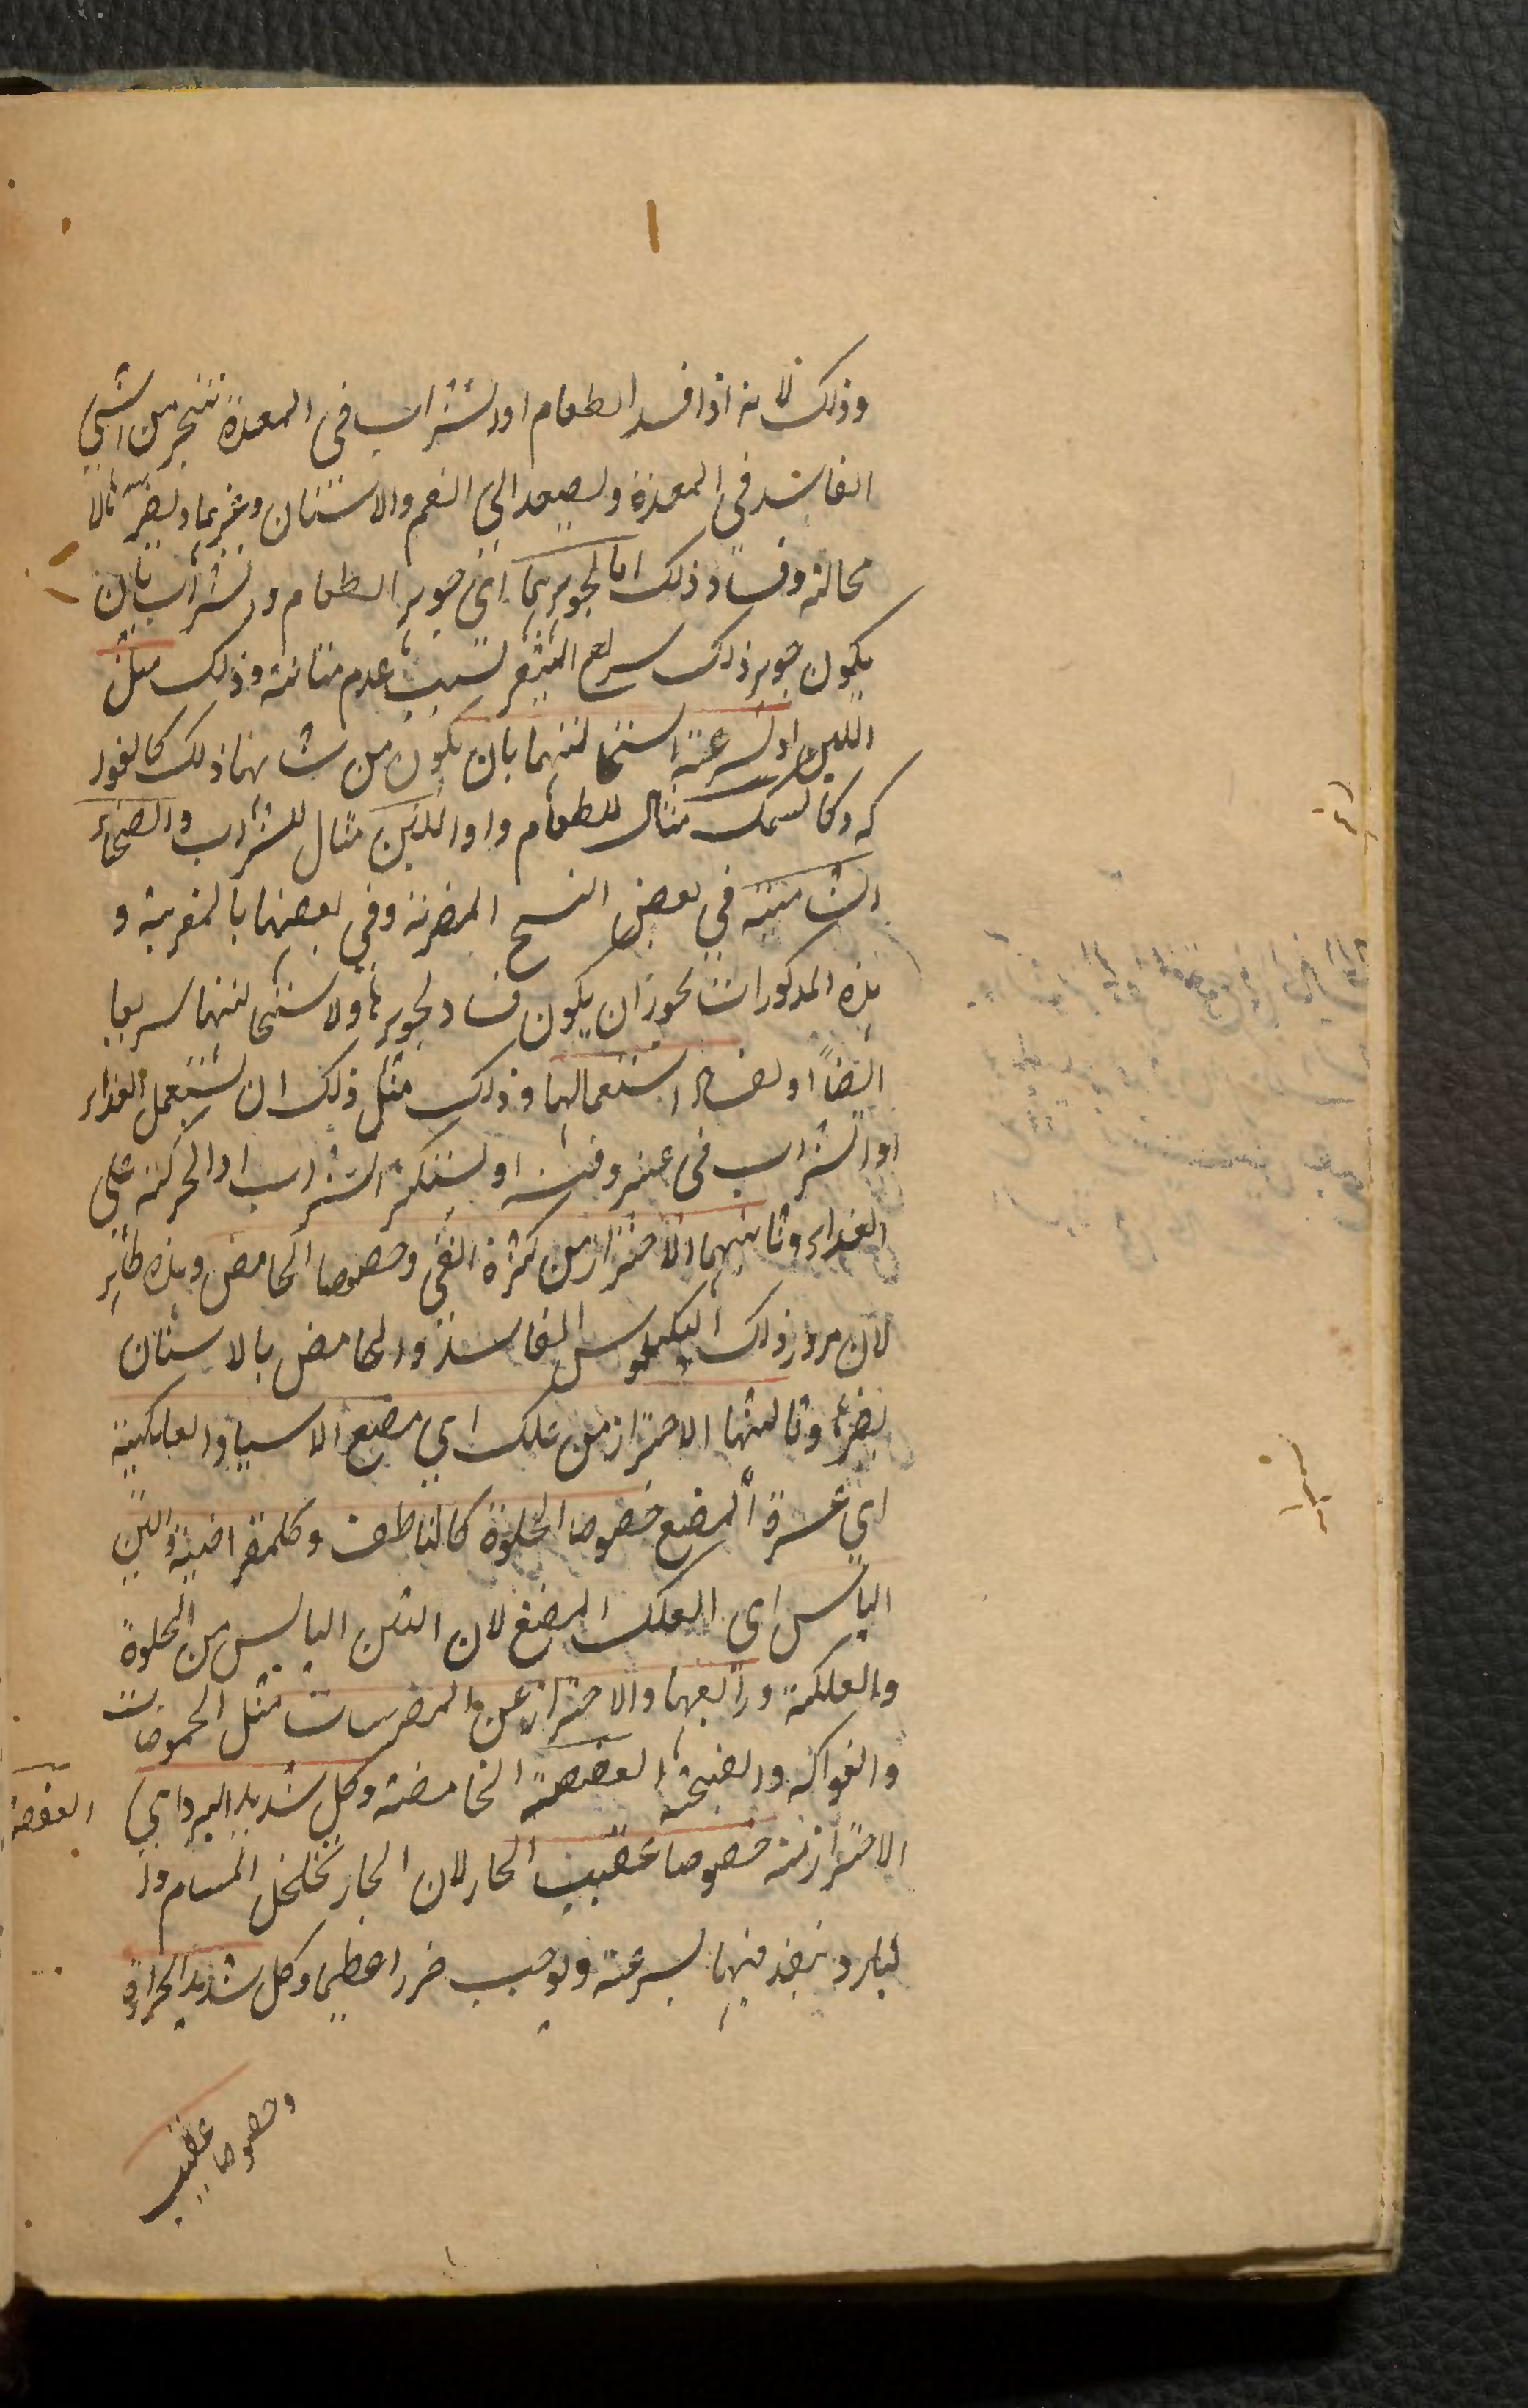 وذلك لانه اذا فسد الطعام او الشراب فى المعدة تبخر من الشئ
الفاسد فى المعدة ويصعد الى الفم والاسنان وغيرهما ويضرها لا
محالة وفساد ذلك اما لجوهرهما اى جوهر الطعام والشراب بان
يكون جوهر ذلك سريع التغير لسبب عدم متانته وذلك مثل
اللبن او لسرعة استحالتهما بان يكون من شانهما ذلك كالفود
كه وكالسمك مثال للطعام واو اللبن مثال للشراب والصحناء
المنتنة فى بعض النسخ المضرية وفى بعضها بالمغربية و
هذه المذكورات يجوز ان يكون فساد لجوهرها ولاستحالتها سريعا
ايضاً او لفساد استعمالها وذلك مثل ذلك ان يستعمل الغذاء
او الشراب فى غير وقته او يستكثر الشراب او الحركة على
الغذاء وثانيهما الاحتراز من كثرة القى وخصوصا الحامض وهذه ظاهر
لان مرور ذلك الكيموس الفاسد والحامض بالاسنان
يضرها وثالثها الاحتراز من علك اى مضع الاسيا والعلكية
اى عسرة المضع خصوصا الحلوة كالناطف وكلمقراضية والتين
اليابس اى العلك المضغ لان التين اليابس من الحلوة
والعلكة ورابعها والاحتراز عن المضرسات مثل الحموضات
والفواكه والفجة العفصة الحامضة وكل شديد البرد اى
العفصة
الاحتراز منه خصوصا عقيب الحار لان الحار يخلخل المسام وا
لبارد ينفذ فيها بسرعة ويوجب ضررا عظيما وكل شديد الحرارة
وخصوصا عقيب